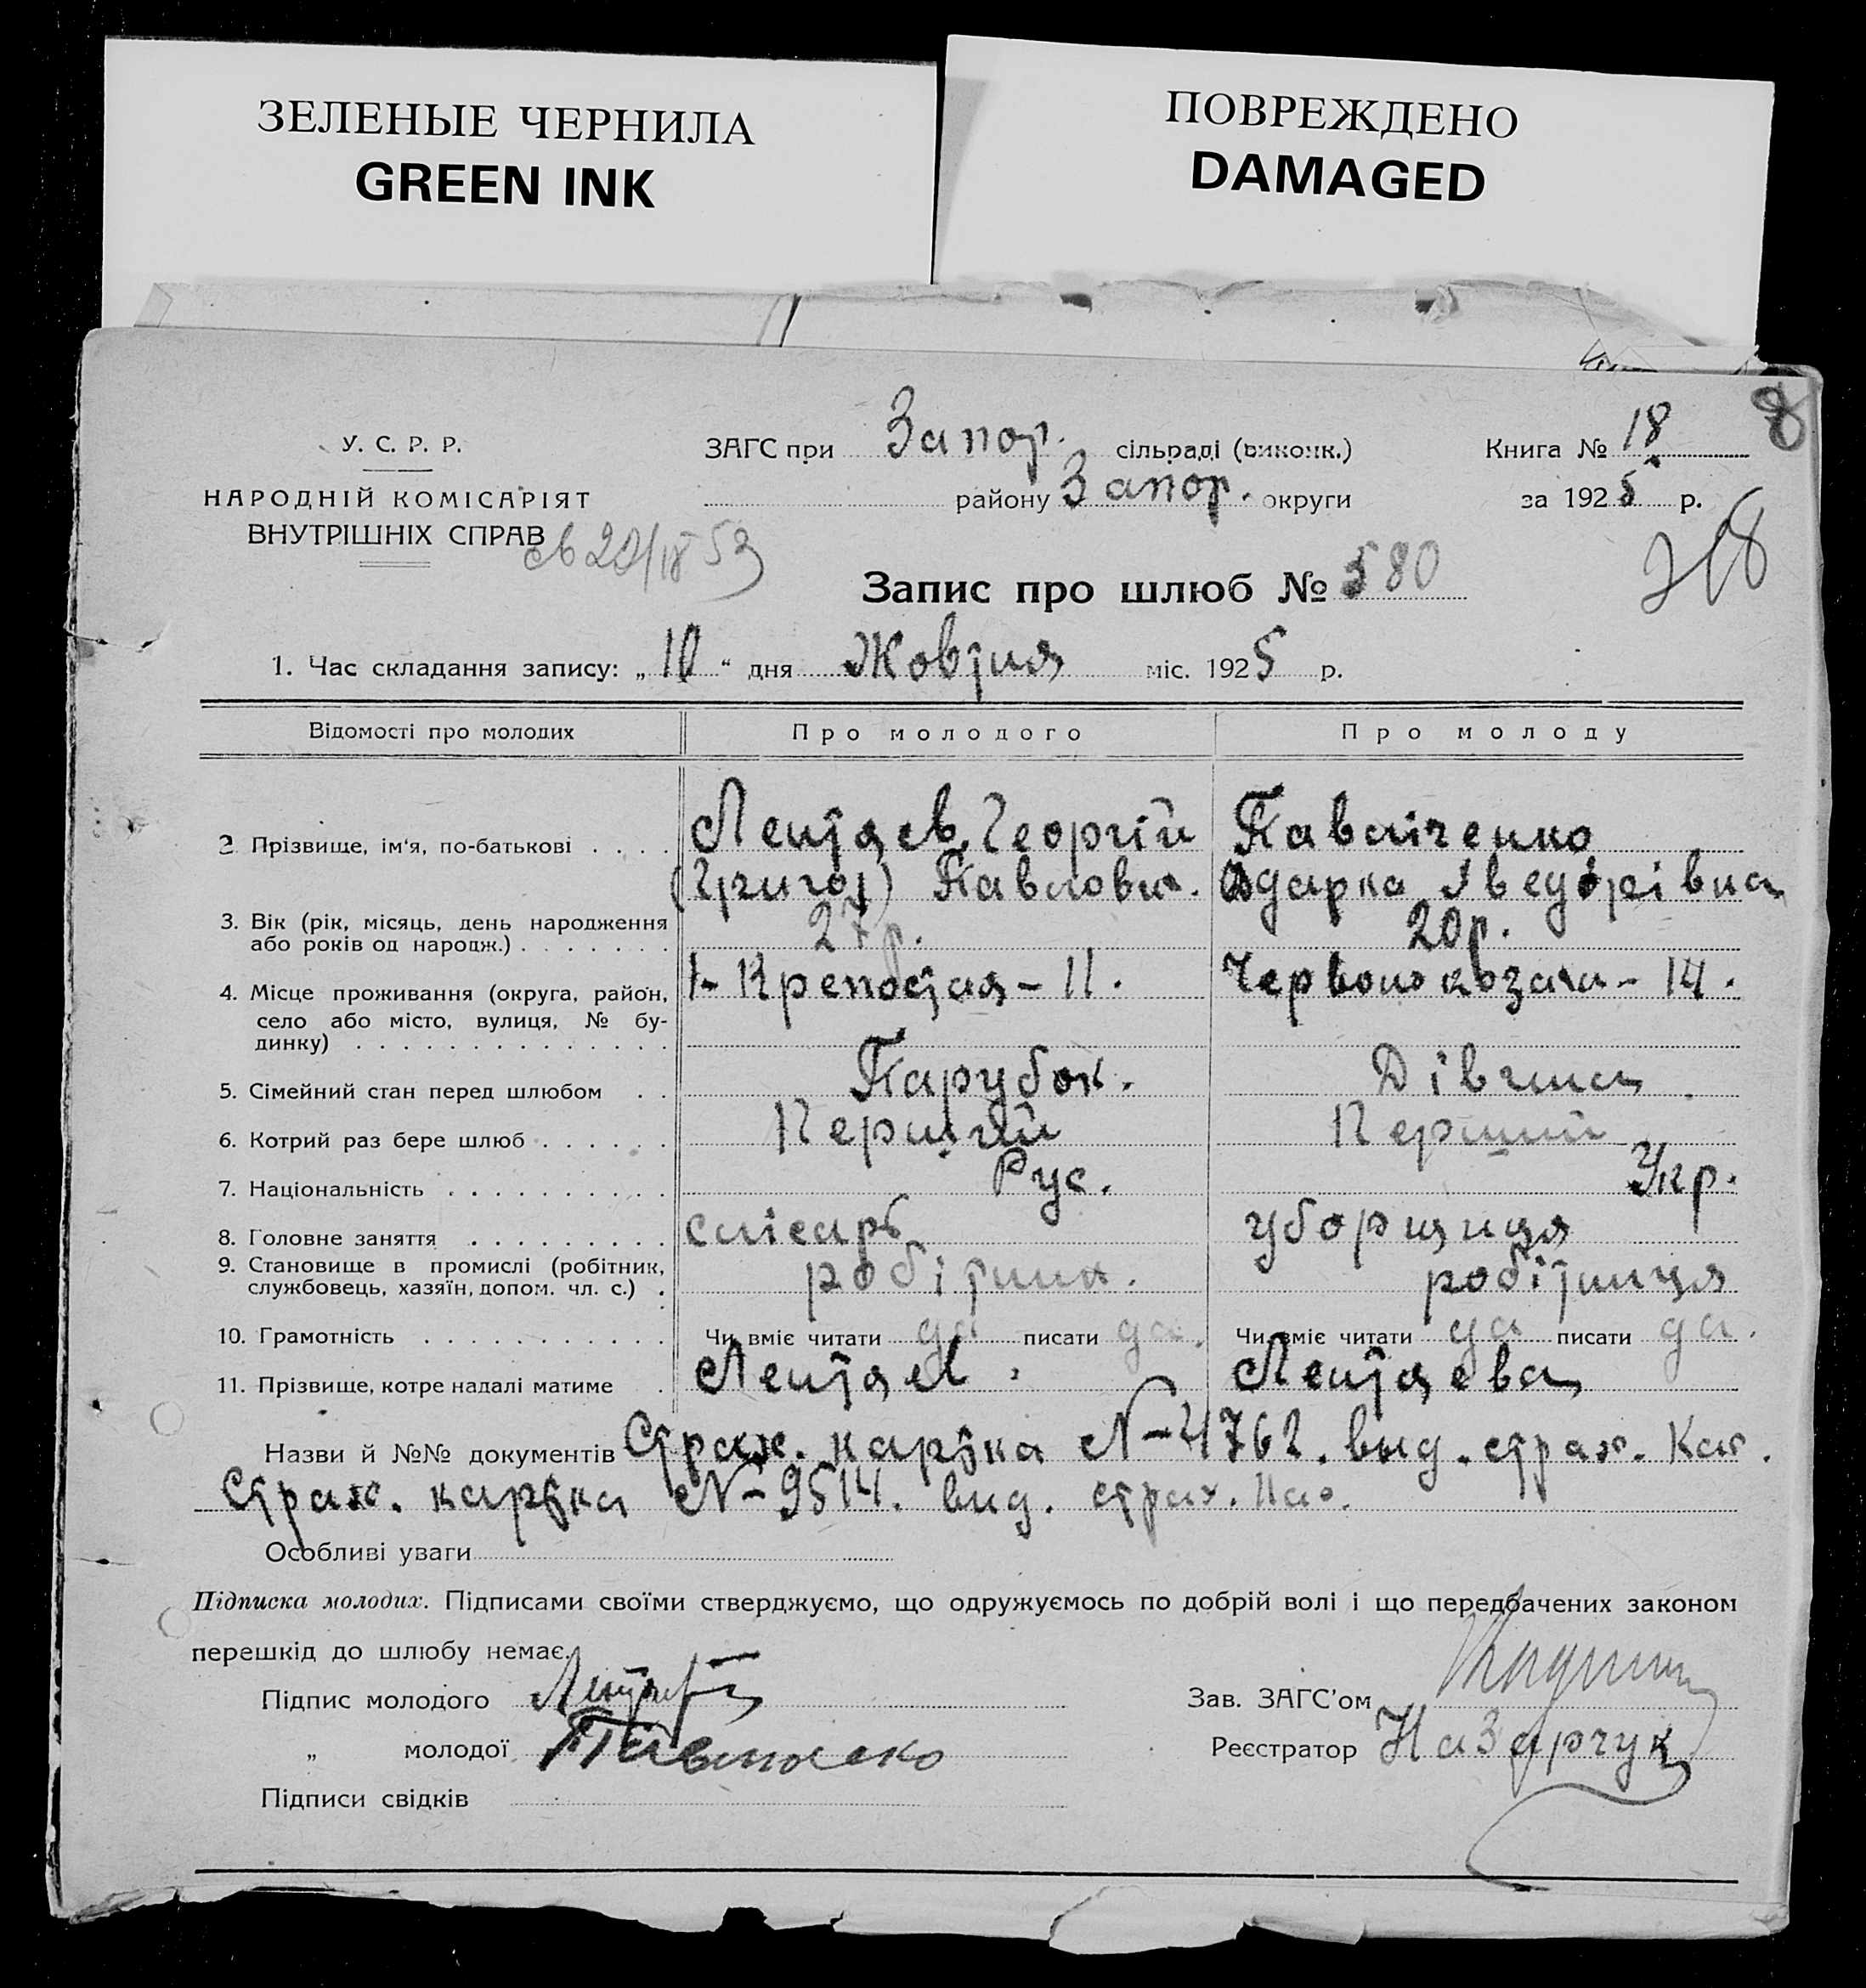 ЗЕЛЕНЫЕ ЧЕРНИЛА
GREEN INK
ПОВРЕЖДЕНО
DAMAGED
У. С. Р. Р.
НАРОДНІЙ КОМІСАРІЯТ
ВНУТРІШНІХ СПРАВ
ЗАГС при Запор. сільраді (виконк.)
району Запор. округи
Книга № 18
за 1925 р.
8
Запис про шлюб № 580
1. Час складання запису: „10“ дня Жовтня міс. 1925 р.
Відомості про молодих Про молодого Про молоду
2 Прізвище, ім'я, по-батькові . . . . Лентяев Георгій Павліченко
(Григор) Павлович. Одарка
3. Вік (рік, місяць, день народження
або років од народж.) . . . . . . . 27р. 20р.
4. Місце проживання (округа, район, Крепостная – 11. Червоно козача – 14.
село або місто, вулиця, № бу-
динку) . . . . . . . . . . . . . .
5. Сімейний стан перед шлюбом . . Парубок. Дівчина
6. Котрий раз бере шлюб . . . . . . Перший Перший
7. Національність . . . . . . . . . . Рус. Укр.
8. Головне заняття . . . . . . . . . слісарь уборщиця
9. Становище в промислі (робітник,
службовець, хазяїн, допом. чл. с.) . робітник. робітниця
10. Грамотність . . . . . . . . . . . Чи вміє читати да писати да. Чи вміє читати да писати да.
11. Прізвище, котре надалі матиме . Лентяев. Лентяева
Назви й №№ документів Страх. картка № – 4762. выд. страх. Кас.
Страх. картка № – 9514. вид. страх. Кас.
Особливі уваги
Підписка молодих. Підписами своїми стверджуємо, що одружуємось по добрій волі і що передбачених законом
перешкід до шлюбу немає.
Підпис молодого
Зав. ЗАГС'ом
„ молодої
Реєстратор Назарчук
Підписи свідків